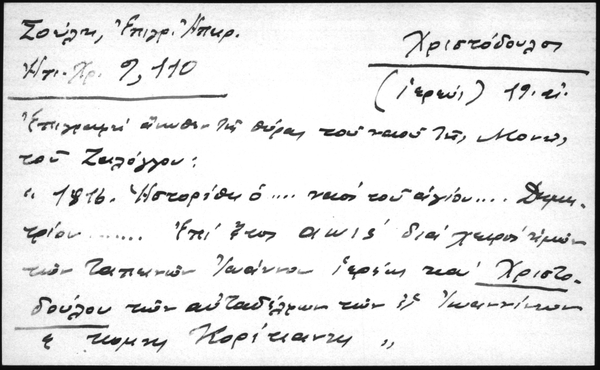 Ζούλη, Ἐπιγρ. Ἠπειρ.
Ἠπ. Χρ. 9, 110
Χριστόδουλος
(ἱερεύς) 19. αἰ.
Ἐπιγραφή ἄνωθεν τῆς θύρας τοῦ ναοῦ τῆς Μονῆς
τοῦ Ζαλόγγου:
" 1816. Ἡστορίθη ὁ .... ναός τοῦ ἁγίου .... Δημη-
τρίου ....... Ἐπί ἔτος αωις' διά χειρός ἡμῶν
τῶν ταπεινῶν Ἰωάννου ἱερέως καί Χριστο-
δούλου τῶν αὐταδέλφων τῶν ἐξ Ἰωαννίνων
κόμης Κορίτιανη "